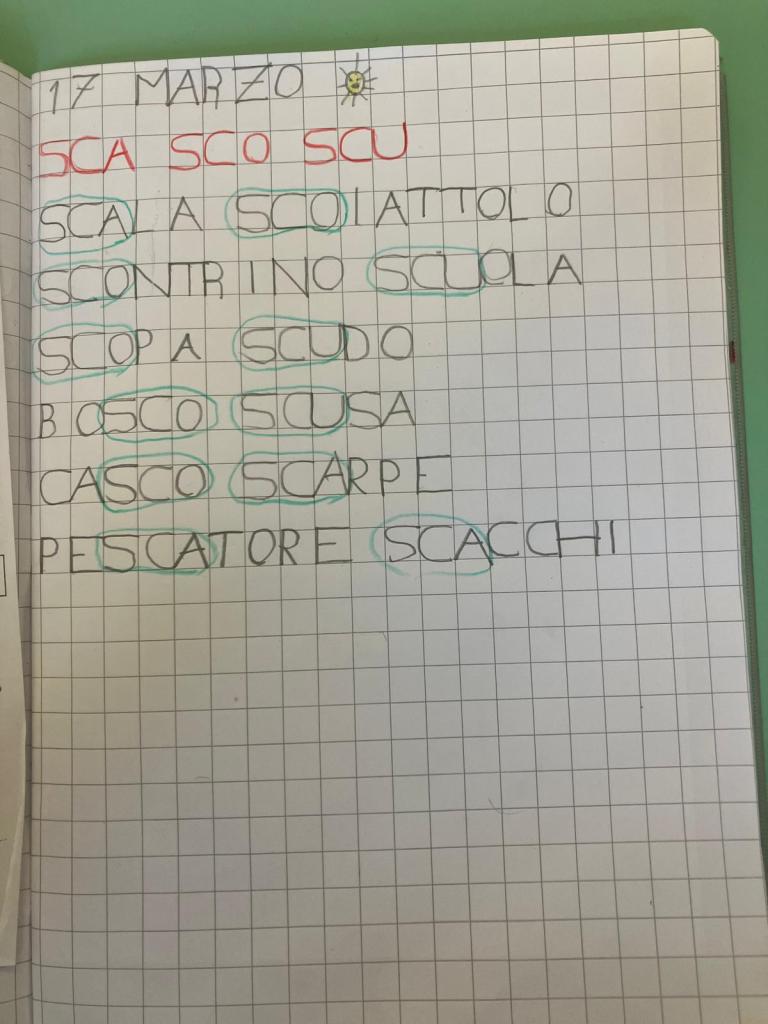 17 MARZO
SCA SCO SCU
SCALA SCOIATTOLO
SCONTRINO SCUOLA
SCOPA SCUDO
BOSCO SCUSA
CASCO SCARPE
PESCATORE SCACCHI